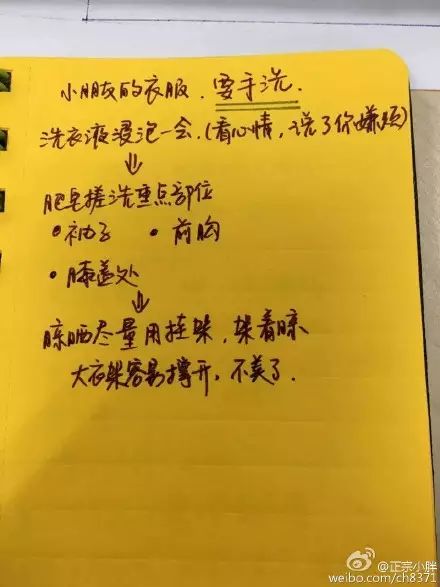 小朋友的衣服，要手洗．
洗衣液浸泡一会．（看心情，说了你嫌烦）
⇓
肥皂搓洗重点部位
• 袖子 • 前胸
• 膝盖处
⇓
晾晒尽量用挂架，架着晾
大衣架容易撑开，不美了．
@正宗小胖
weibo.com/ch8371